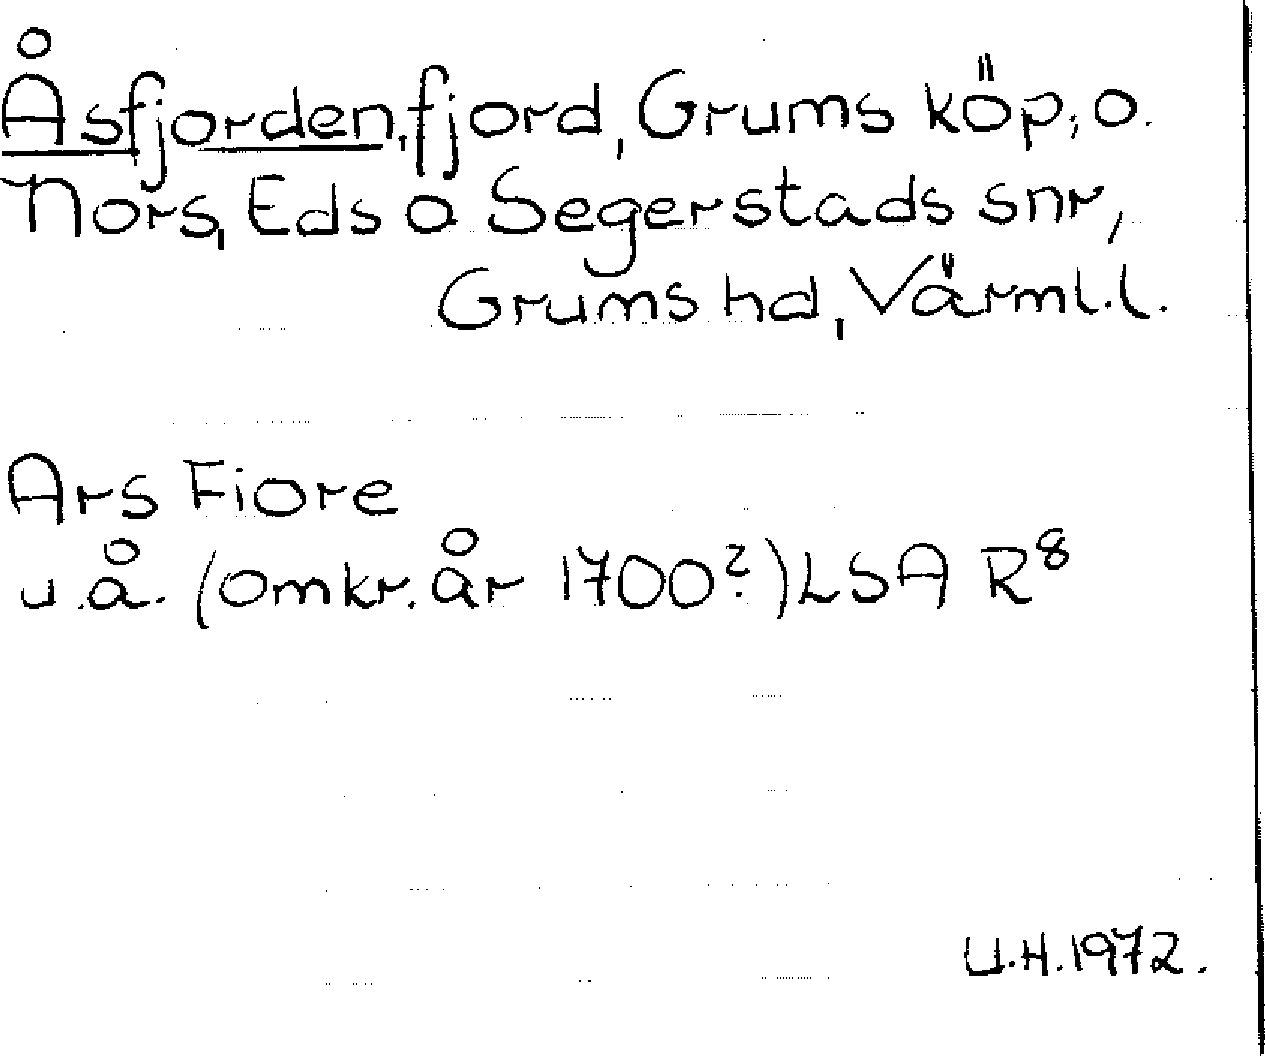 Åsfjorden, fjord, Grums köp; o.
Nors, Eds o Segerstads snr,
Grums hd, Värml.l.
Ars Fiore
u.å. (omkr. år 1700?) LSA R⁸
U.H. 1972.